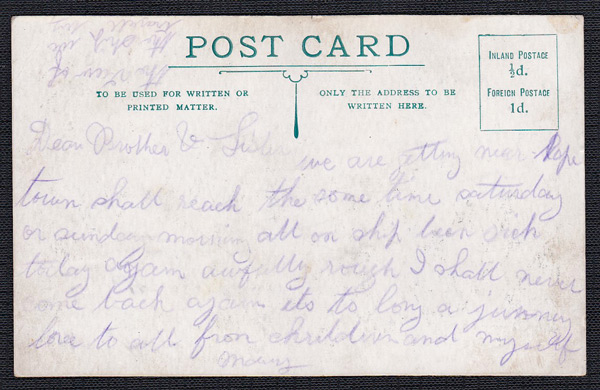 POST CARD
TO BE USED FOR WRITTEN OR
PRINTED MATTER.
ONLY THE ADDRESS TO BE
WRITTEN HERE.
INLAND POSTAGE
½d.
FOREIGN POSTAGE
1d.
the View of
the Ship we
Dear Brother & Sister we are getting near Kape
town shall reach the some time saturday
or sunday morning all on ship been sick
today again awfully rough I shall never
come back again its to long a jurney
love to all from children and myself